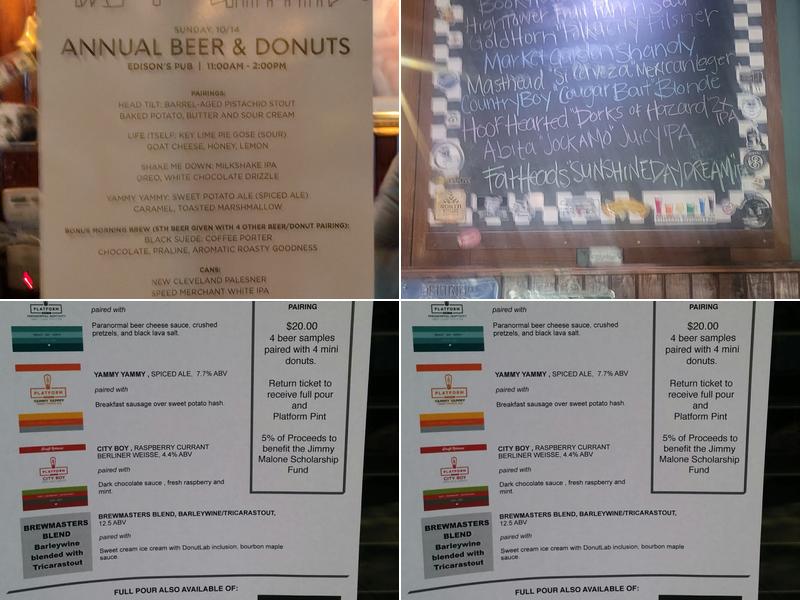 SUNDAY, 10/14
ANNUAL BEER & DONUTS
EDISON'S PUB | 11:00AM - 2:00PM
PAIRINGS:
HEAD TILT: BARREL-AGED PISTACHIO STOUT
BAKED POTATO, BUTTER AND SOUR CREAM
LIFE ITSELF: KEY LIME PIE GOSE (SOUR)
GOAT CHEESE, HONEY, LEMON
SHAKE ME DOWN: MILKSHAKE IPA
OREO, WHITE CHOCOLATE DRIZZLE
YAMMY YAMMY: SWEET POTATO ALE (SPICED ALE)
CARAMEL, TOASTED MARSHMALLOW
BONUS MORNING BREW (5TH BEER GIVEN WITH 4 OTHER BEER/DONUT PAIRING):
BLACK SUEDE: COFFEE PORTER
CHOCOLATE, PRALINE, AROMATIC ROASTY GOODNESS
CANS:
NEW CLEVELAND PALESNER
SPEED MERCHANT WHITE IPA
HighTower Fruit Punch Sour
GoldHorn Polka City Pilsner
Market Garden Shandy
Masthead "Si Cerveza" Mexican Lager
Country Boy "Cougar Bait" Blonde
Hoof Hearted "Dorks of Hazzard" 2x IPA
Abita "JOCKAMO" JUICY IPA
FatHeads "SUNSHINE DAYDREAM"
PLATFORM
paired with
Paranormal beer cheese sauce, crushed
pretzels, and black lava salt.
PLATFORM
YAMMY YAMMY
YAMMY YAMMY , SPICED ALE, 7.7% ABV
paired with
Breakfast sausage over sweet potato hash.
PLATFORM
CITY BOY
CITY BOY , RASPBERRY CURRANT
BERLINER WEISSE, 4.4% ABV
paired with
Dark chocolate sauce , fresh raspberry and
mint.
BREWMASTERS
BLEND
Barleywine
blended with
Tricarastout
BREWMASTERS BLEND, BARLEYWINE/TRICARASTOUT,
12.5 ABV
paired with
Sweet cream ice cream with DonutLab inclusion, bourbon maple
sauce.
PAIRING
$20.00
4 beer samples
paired with 4 mini
donuts.
Return ticket to
receive full pour
and
Platform Pint
5% of Proceeds to
benefit the Jimmy
Malone Scholarship
Fund
FULL POUR ALSO AVAILABLE OF:
PLATFORM
paired with
Paranormal beer cheese sauce, crushed
pretzels, and black lava salt.
PLATFORM
YAMMY YAMMY
YAMMY YAMMY , SPICED ALE, 7.7% ABV
paired with
Breakfast sausage over sweet potato hash.
PLATFORM
CITY BOY
CITY BOY , RASPBERRY CURRANT
BERLINER WEISSE, 4.4% ABV
paired with
Dark chocolate sauce , fresh raspberry and
mint.
BREWMASTERS
BLEND
Barleywine
blended with
Tricarastout
BREWMASTERS BLEND, BARLEYWINE/TRICARASTOUT,
12.5 ABV
paired with
Sweet cream ice cream with DonutLab inclusion, bourbon maple
sauce.
PAIRING
$20.00
4 beer samples
paired with 4 mini
donuts.
Return ticket to
receive full pour
and
Platform Pint
5% of Proceeds to
benefit the Jimmy
Malone Scholarship
Fund
FULL POUR ALSO AVAILABLE OF: